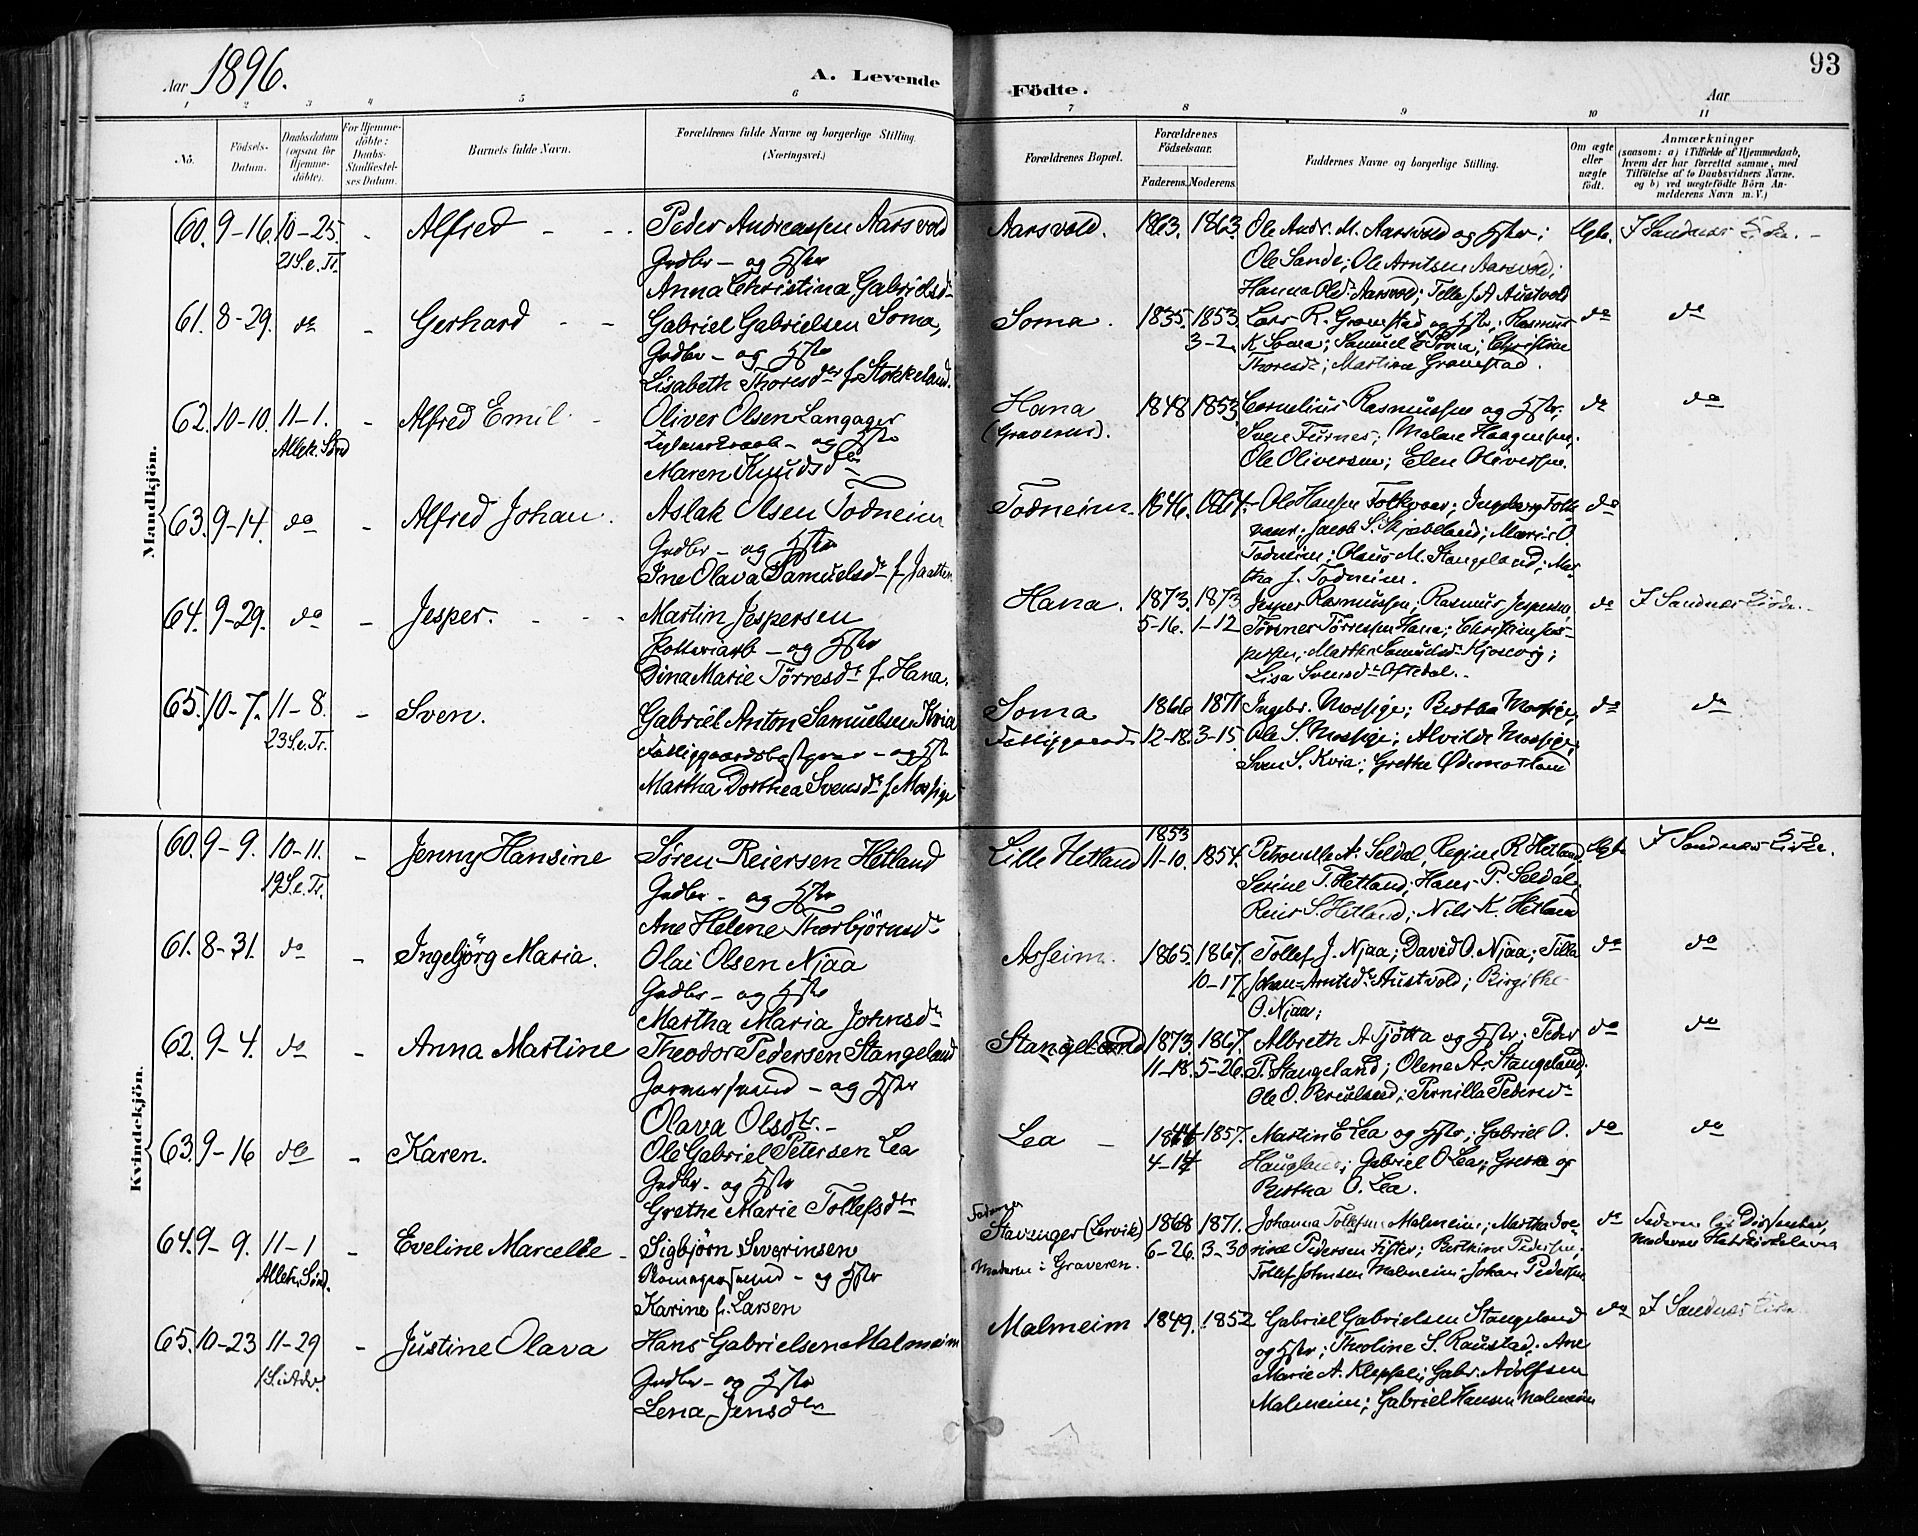 Aar 1896.
A. Levende Födte.
93
Aar
1 2 3 4 5 6 7 8 9 10 11
No.
Födsels-Datum.
Daabsdatum (ogsaa för Hjemmedöbte).
For Hjemmedöbte: Daabs-Stadfæstelses Datum.
Barnets fulde Navn.
Forældrenes fulde Navne og borgerlige Stilling. (Næringsvei.)
Forældrenes Bopæl.
Forældrenes Födselsaar.
Faderens. Moderens.
Faddernes Navne og borgerlige Stilling.
Om ægte eller uægte födt.
Anmærkninger
(saasom: a) i Tilfælde af Hjemmedaab, hvem der har forrettet samme, med Tilföielse af to Daabsvidners Navne. og b) ved uægtefödte Börn Anmelderens Navn m.V.)
Mandkjön.
60. 9-16. 10-25. - Alfred - - Peder Andreassen Aarsvold Aarsvold. 1863. 1863. Ole Andr. M. Aarsvold og Hstr; Egte. I Sandnes Kirke. -
21 S. e. Tr. Grdbr - og Hstr Ole Sande; Ole Arntsen Aarsvold;
Anna Christina Gabrielsd- Hanna Olsd. Aarsvold; Tilla J. A. Austvold
61. 8-29. do - Gerhard - - Gabriel Gabrielsen Soma, Soma. 1835. 1853 Lars R. Gramstad og Hstr; Rasmus do do
Grdbr - og Hstr 3-2. K Soma; Samuel E Soma; Christine
Lisabeth Thoresdtr f. Stokkeland. Thoresd-; Martine Gramstad.
62. 10-10. 11-1. - Alfred Emil - Oliver Olsen Langager Hana 1848 1853 Cornelius Rasmussen og Hstr; do do
Alleh. Sønd og Hstr (Graveren). Sven Furnes; Malene Haagensen;
Maren Knudsdtr Ole Oliversen; Elen Oliversen.
63. 9-14. do - Alfred Johan. Aslak Olsen Todneim Todneim. 1846. 1864. Ole Hansen Folkvor; Ingeborg Folk do
Grdbr - og Hstr Jacob S. Skjæveland; Marie O.
Ine Olava Samuelsdr f. Jaatten Todneim; Olaus M. Stangeland; Mar-
tha J. Todneim.
64. 9-29. do - Jesper. - - Martin Jespersen Hana. 1873. 1873 Jesper Rasmussen; Rasmus Jespersen, do I Sandnes Kirke.
Potteriarb - og Hstr 5-16. 1-12 Tørres Tørressen Hana; Christine Jes-
Dina Marie Tørresdr f. Hana. persen; Martha Samuelsd. Kjosavig;
Lisa Svensdr Oftedal.
65. 10-7. 11-8. - Sven. Gabriel Anton Samuelsen Kvia Soma 1866 1871. Ingebr. Mossige; Bertha Mossige, do do
23 S. e. Tr. Fattiggaardsbestyrer - og Hstr Fattiggaard. 12-18. 3-15. Ole S. Mossige; Alvilde Mossige;
Martha Dorthea Svensdr f. Mossige Sven S. Kvia; Grethe Ødemotland
Kvindekjön.
60. 9-9. 10-11. - Jenny Hansine Søren Reiersen Hetland Lille Hetland 1853 11-10. 1854. Petronelle N. Seldal, Regine R. Hetland Egte I Sandnes Kirke.
19 S. e. Tr. Grdbr - og Hstr Serine T. Hetland; Hans P. Seldal,
Ane Helene Thorbjörnsdr Reier S. Hetland; Nils K. Hetland
61. 8-31. do - Ingebjörg Maria. Olai Olsen Njaa Asheim. 1865. 1867. Tollef J. Njaa; David O. Njaa; Tilla do do
Grdbr - og Hstr 10-17. Johan- Arntsdr Austvold; Birgithe
Martha Maria Johnsdr O. Njaa;
62. 9-4. do - Anna Martine Theodor Pedersen Stangeland Stangeland 1873. 1867. Albreth A. Tjøtta og Hstr; Peder do do
Garversvend - og Hstr 11-18. 5-26. P. Stangeland; Olene A. Stangeland;
Olava Olsdtr. - Ole O. Breiland; Pernilla Pedersd-
63. 9-16 do - Karen. Ole Gabriel Petersen Lea Lea - 1844 1857. Martin E Lea og Hstr; Gabriel O. do do
Grdbr - og Hstr 4-14 Haugland; Gabriel O Lea; Grethe og
Grethe Marie Tollefsdtr Bertha O. Lea.
64. 9-9. 11-1 - Eveline Marcelie - Sigbjørn Severinsen Faderen Stavanger (Lervik) 1868 1871. Johanna Tollefsen Malmeim; Martha Se- do Faderen Dissenter,
Alleh. Sønd. og Hstr Moderen i Graveren. 6-26. 3-30 rine Pedersen Fister; Berthine Pedersen; Moderen Statskirkelava
Karine f. Larsen Tollef Johnsen Malmeim; Johan Pedersen
65. 10-23 11-29 - Justine Olava Hans Gabrielsen Malmeim Malmeim 1849. 1852 Gabriel Gabrielsen Stangeland do I Sandnes Kirke.
1 S. i Adv. Grdbr - og Hstr og Hstr; Theoline S. Raustad; Ane
Lena Jensdtr Marie A. Kleppe; Gabr. Adolfsen
Malmeim; Gabriel Hansen Malmeim